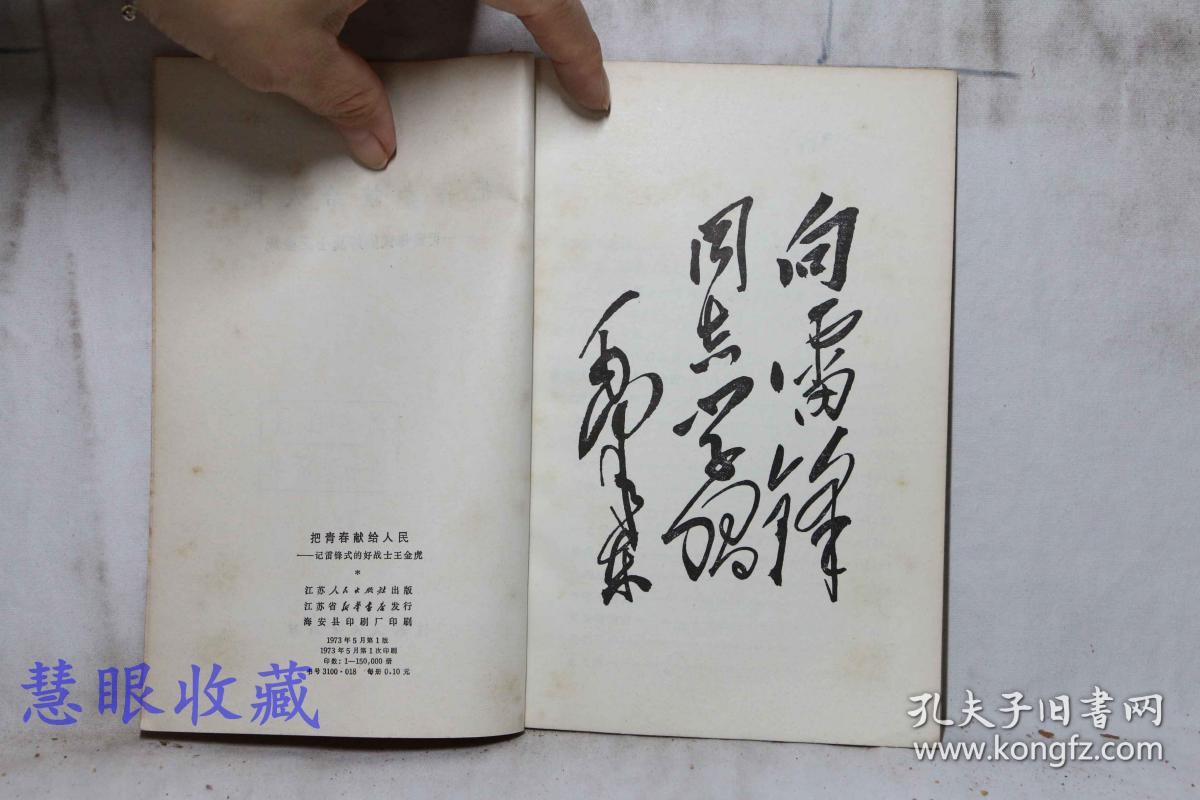 向雷锋
同志学习
毛泽东
把青春献给人民
——记雷锋式的好战士王金虎
*
江苏人民出版社出版
江苏省新华书店发行
海安县印刷厂印刷
1973年5月第1版
1973年5月第1次印刷
印数：1—150,000册
书号3100·018 每册0.10元
慧眼收藏
孔夫子旧書网
www.kongfz.com